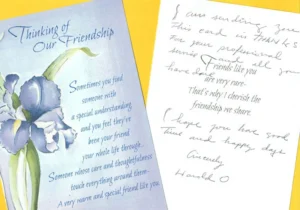 Thinking of
Our Friendship
Sometimes you find
someone with
a special understanding,
and you feel they've
been your friend
your whole life through.
Someone whose care and thoughtfulness
touch everything around them-
A very warm and special friend like you.
I am sending you
This card is THANKS
For your professional
service and all you
have
Friends like you
are very rare-
That's why I cherish
the friendship we share.
I hope you have good
Time and happy days
Sincerely
Harold O